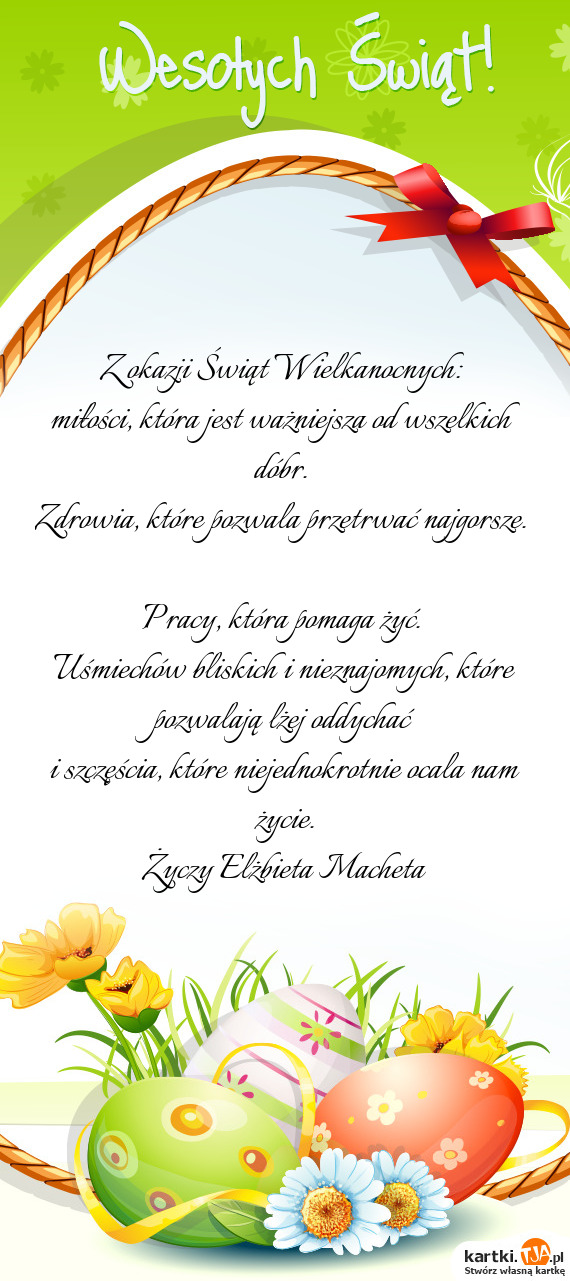 Wesołych Świąt!
Z okazji Świąt Wielkanocnych:
miłości, która jest ważniejsza od wszelkich
dóbr.
Zdrowia, które pozwala przetrwać najgorsze.
Pracy, która pomaga żyć.
Uśmiechów bliskich i nieznajomych, które
pozwalają lżej oddychać
i szczęścia, które niejednokrotnie ocala nam
życie.
Życzy Elżbieta Macheta
kartki.TJA.pl
Stwórz własną kartkę